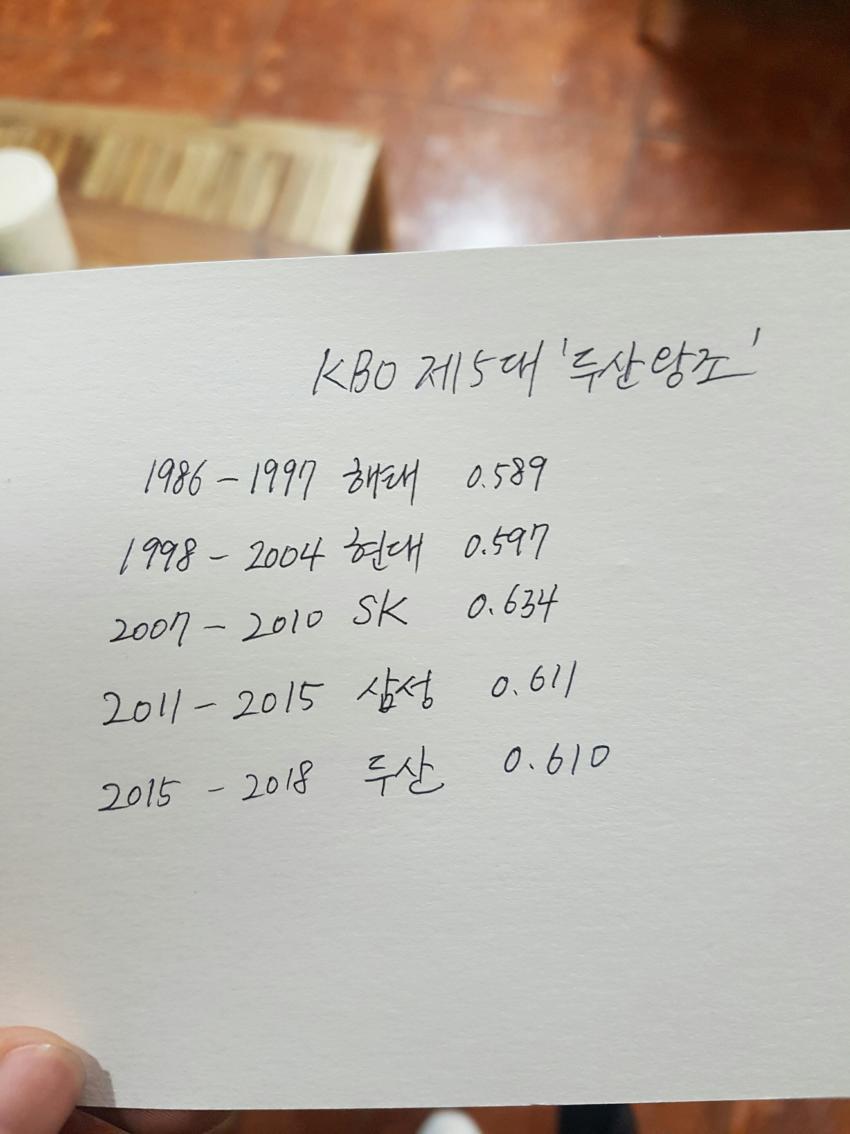 KBO 제5대 '두산왕조'
1986 - 1997 해태 0.589
1998 - 2004 현대 0.597
2007 - 2010 SK 0.634
2011 - 2015 삼성 0.611
2015 - 2018 두산 0.610